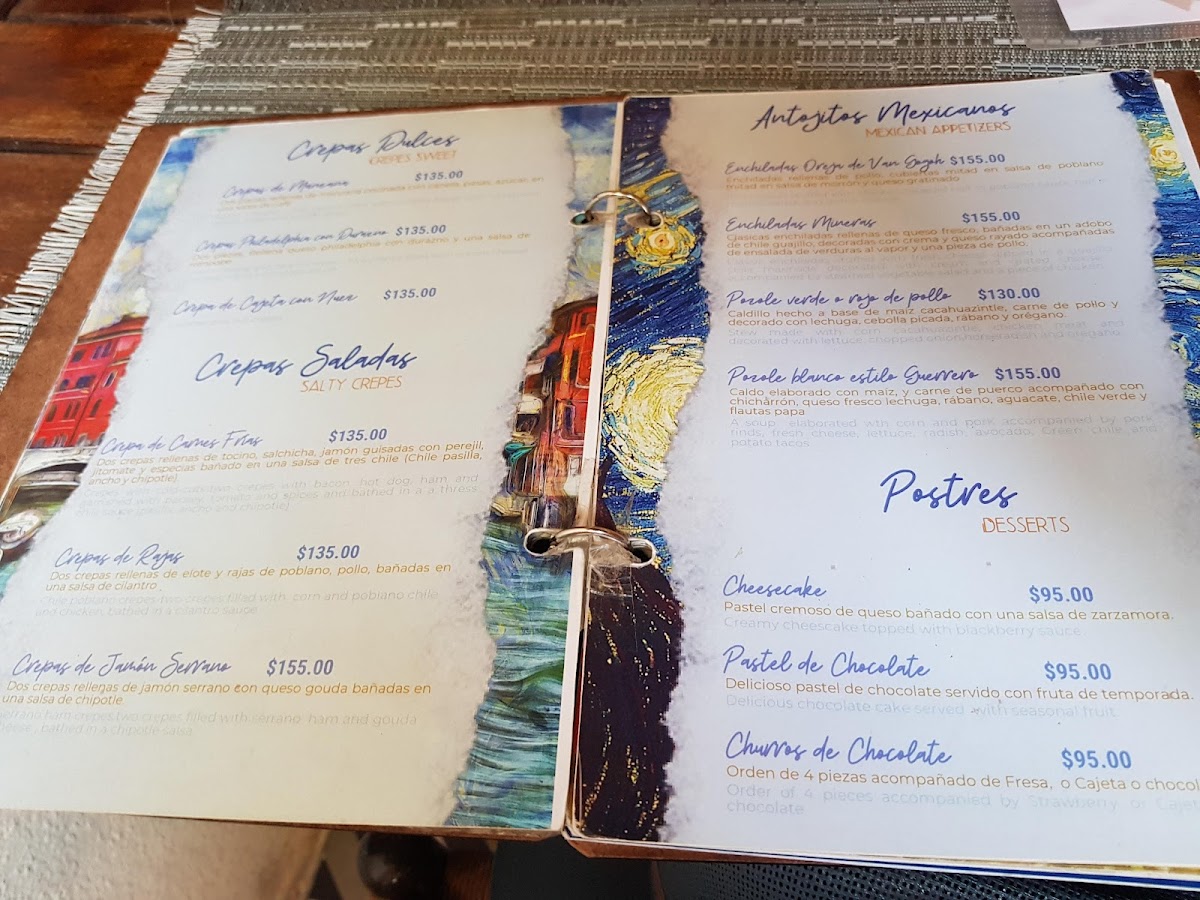 Crepas Dulces
CREPES SWEET
Crepas de Manzana $135.00
Crepas Philadelphia con Durazno $135.00
Crepa de Cajeta con Nuez $135.00
Crepas Saladas
SALTY CREPES
Crepa de Carnes Frias $135.00
Dos crepas rellenas de tocino, salchicha, jamón guisadas con perejil,
jitomate y especias bañado en una salsa de tres chile (Chile pasilla,
ancho y chipotle).
Crepes with cold cuts two crepes with bacon hot dog, ham and
Crepas de Rajas $135.00
Dos crepas rellenas de elote y rajas de poblano, pollo, bañadas en
una salsa de cilantro
Chile poblano crepes two crepes filled with corn and poblano chile
and chicken, bathed in a cilantro sauce
Crepas de Jamón Serrano $155.00
Dos crepas rellenas de jamón serrano con queso gouda bañadas en
una salsa de chipotle.
Serrano ham crepes two crepes filled with serrano ham and gouda
cheese, bathed in a chipotle salsa
Antojitos Mexicanos
MEXICAN APPETIZERS
Enchiladas Oreja de Van Gogh $155.00
Enchiladas rellenas de pollo, cubiertas mitad en salsa de poblano
mitad en salsa de morrón y queso gratinado
Enchiladas Mineras $155.00
Clasicas enchiladas rellenas de queso fresco, bañadas en un adobo
de chile guajillo, decoradas con crema y queso rayado acompañadas
de ensalada de verduras al vapor y una pieza de pollo.
Pozole verde o rojo de pollo $130.00
Caldillo hecho a base de maíz cacahuazintle, carne de pollo y
decorado con lechuga, cebolla picada, rábano y orégano.
Stew made with corn cacahuacintle, chicken meat and
decorated with lettuce, chopped onion,
Pozole blanco estilo Guerrero $155.00
Caldo elaborado con maíz, y carne de puerco acompañado con
chicharrón, queso fresco lechuga, rábano, aguacate, chile verde y
flautas papa
A soup elaborated wtn corn and pork accompanied by pork
rinds, fresh cheese, lettuce, radish, avocado, green chile, and
potato tacos
Postres
DESSERTS
Cheesecake $95.00
Pastel cremoso de queso bañado con una salsa de zarzamora.
Creamy cheescake topped with blackberry sauce.
Pastel de Chocolate $95.00
Delicioso pastel de chocolate servido con fruta de temporada.
Delicious chocolate cake served with seasonal fruit
Churros de Chocolate $95.00
Orden de 4 piezas acompañado de Fresa, o Cajeta o choco
Order of 4 pieces accompanied by Strawberry, or Caje
chocolate